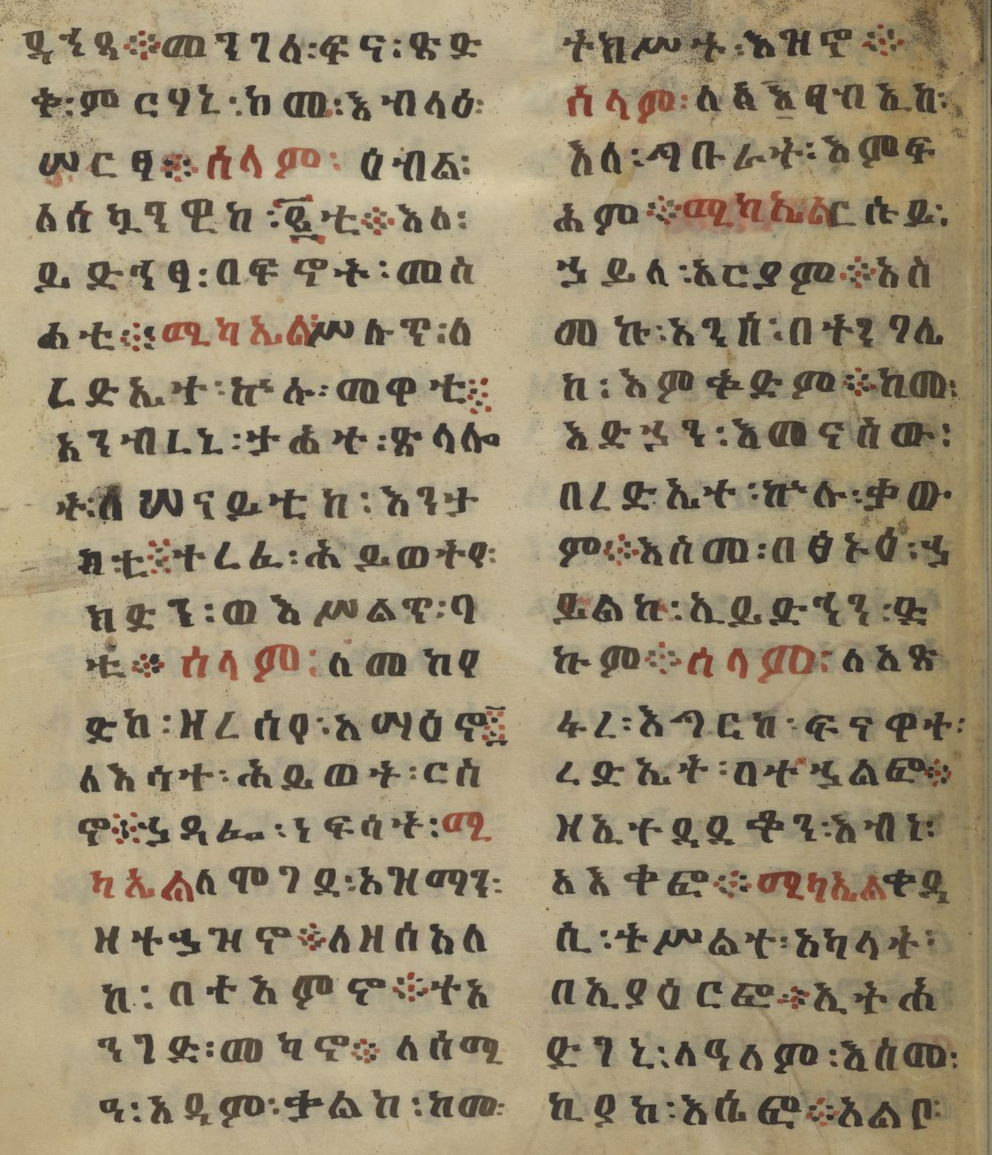 ዲኂዳ፨መንገለ፡ፍና፡ጽድ
ቅ፡ምርሃኒ፡ከመ፡እብላዕ፡
ሠርፀ፨ሰላም፡ ዕብል፡
ለሰኳንዊከ፡፪ቲ፨እለ፡
ይድኂፁ፡በፍኖት፡መስ
ሐቲ፨ሚካኤልሥሉጥ፡ለ
ረድኤት፡ኵሉ፡መዋቲ፨
አንብረኒ፡ታሕተ፡ጽላሎ
ት፡ለሠናይቲከ፡እንታ
ክቲ፨ተረፈ፡ሕይወትየ፡
ክድን፡ወእሥልጥ፡ባ
ቲ፨ ሰላም፡ለመከየ
ድከ፡ዘረሰየ፡አማዕኖ፨
ለእሳተ፡ሕይወት፡ርስ
ኖ፨ኀዳፌ፡ነፍሳት፡ሚ
ካኤልለሞገደ፡አዝማን፡
ዘተኀዝኖ፨ለዘሰአለ
ከ፡በተአምኖ፨ተአ
ንገድ፡መካኖ፨ ለሰሚ
ዓ፡አዲም፡ቃልከ፡ከመ፡
ትክሥት፡እዝኖ፨
ሰላም፡ለአጻብኢከ፡
እለ፡ጣቡራት፡እምፍ
ሕም፨ሚካኤልርሱይ፡
ኂይለ፡አርያም፨አስ
መኩ፡አንሰ፡በትንግሊ
ከ፡እምቅድም፨ከመ፡
እድኂን፡አመናስው፡
በረድኤተ፡ኵሉ፡ቃው
ም፨እስመ፡በፅኑዕ፡ኀ
ይልከ፡ኢይድኂን፡ድ
ኩም፨ሰላም፡ለአጽ
ፋረ፡እግርከ፡ፍናዋተ፡
ረድኤት፡በተኀልፎ፨
ዘኢተደደቆን፡እብነ፡
አእቀፎ፨ሚካኤልቀዳ
ሲ፡ትሥልተ፡አካላት፡
በኢያዕርፎ፨ኢትሕ
ድገኒ፡ለዓለም፡እስመ፡
ኪያከ፡እሴፎ፨አልቦ፡